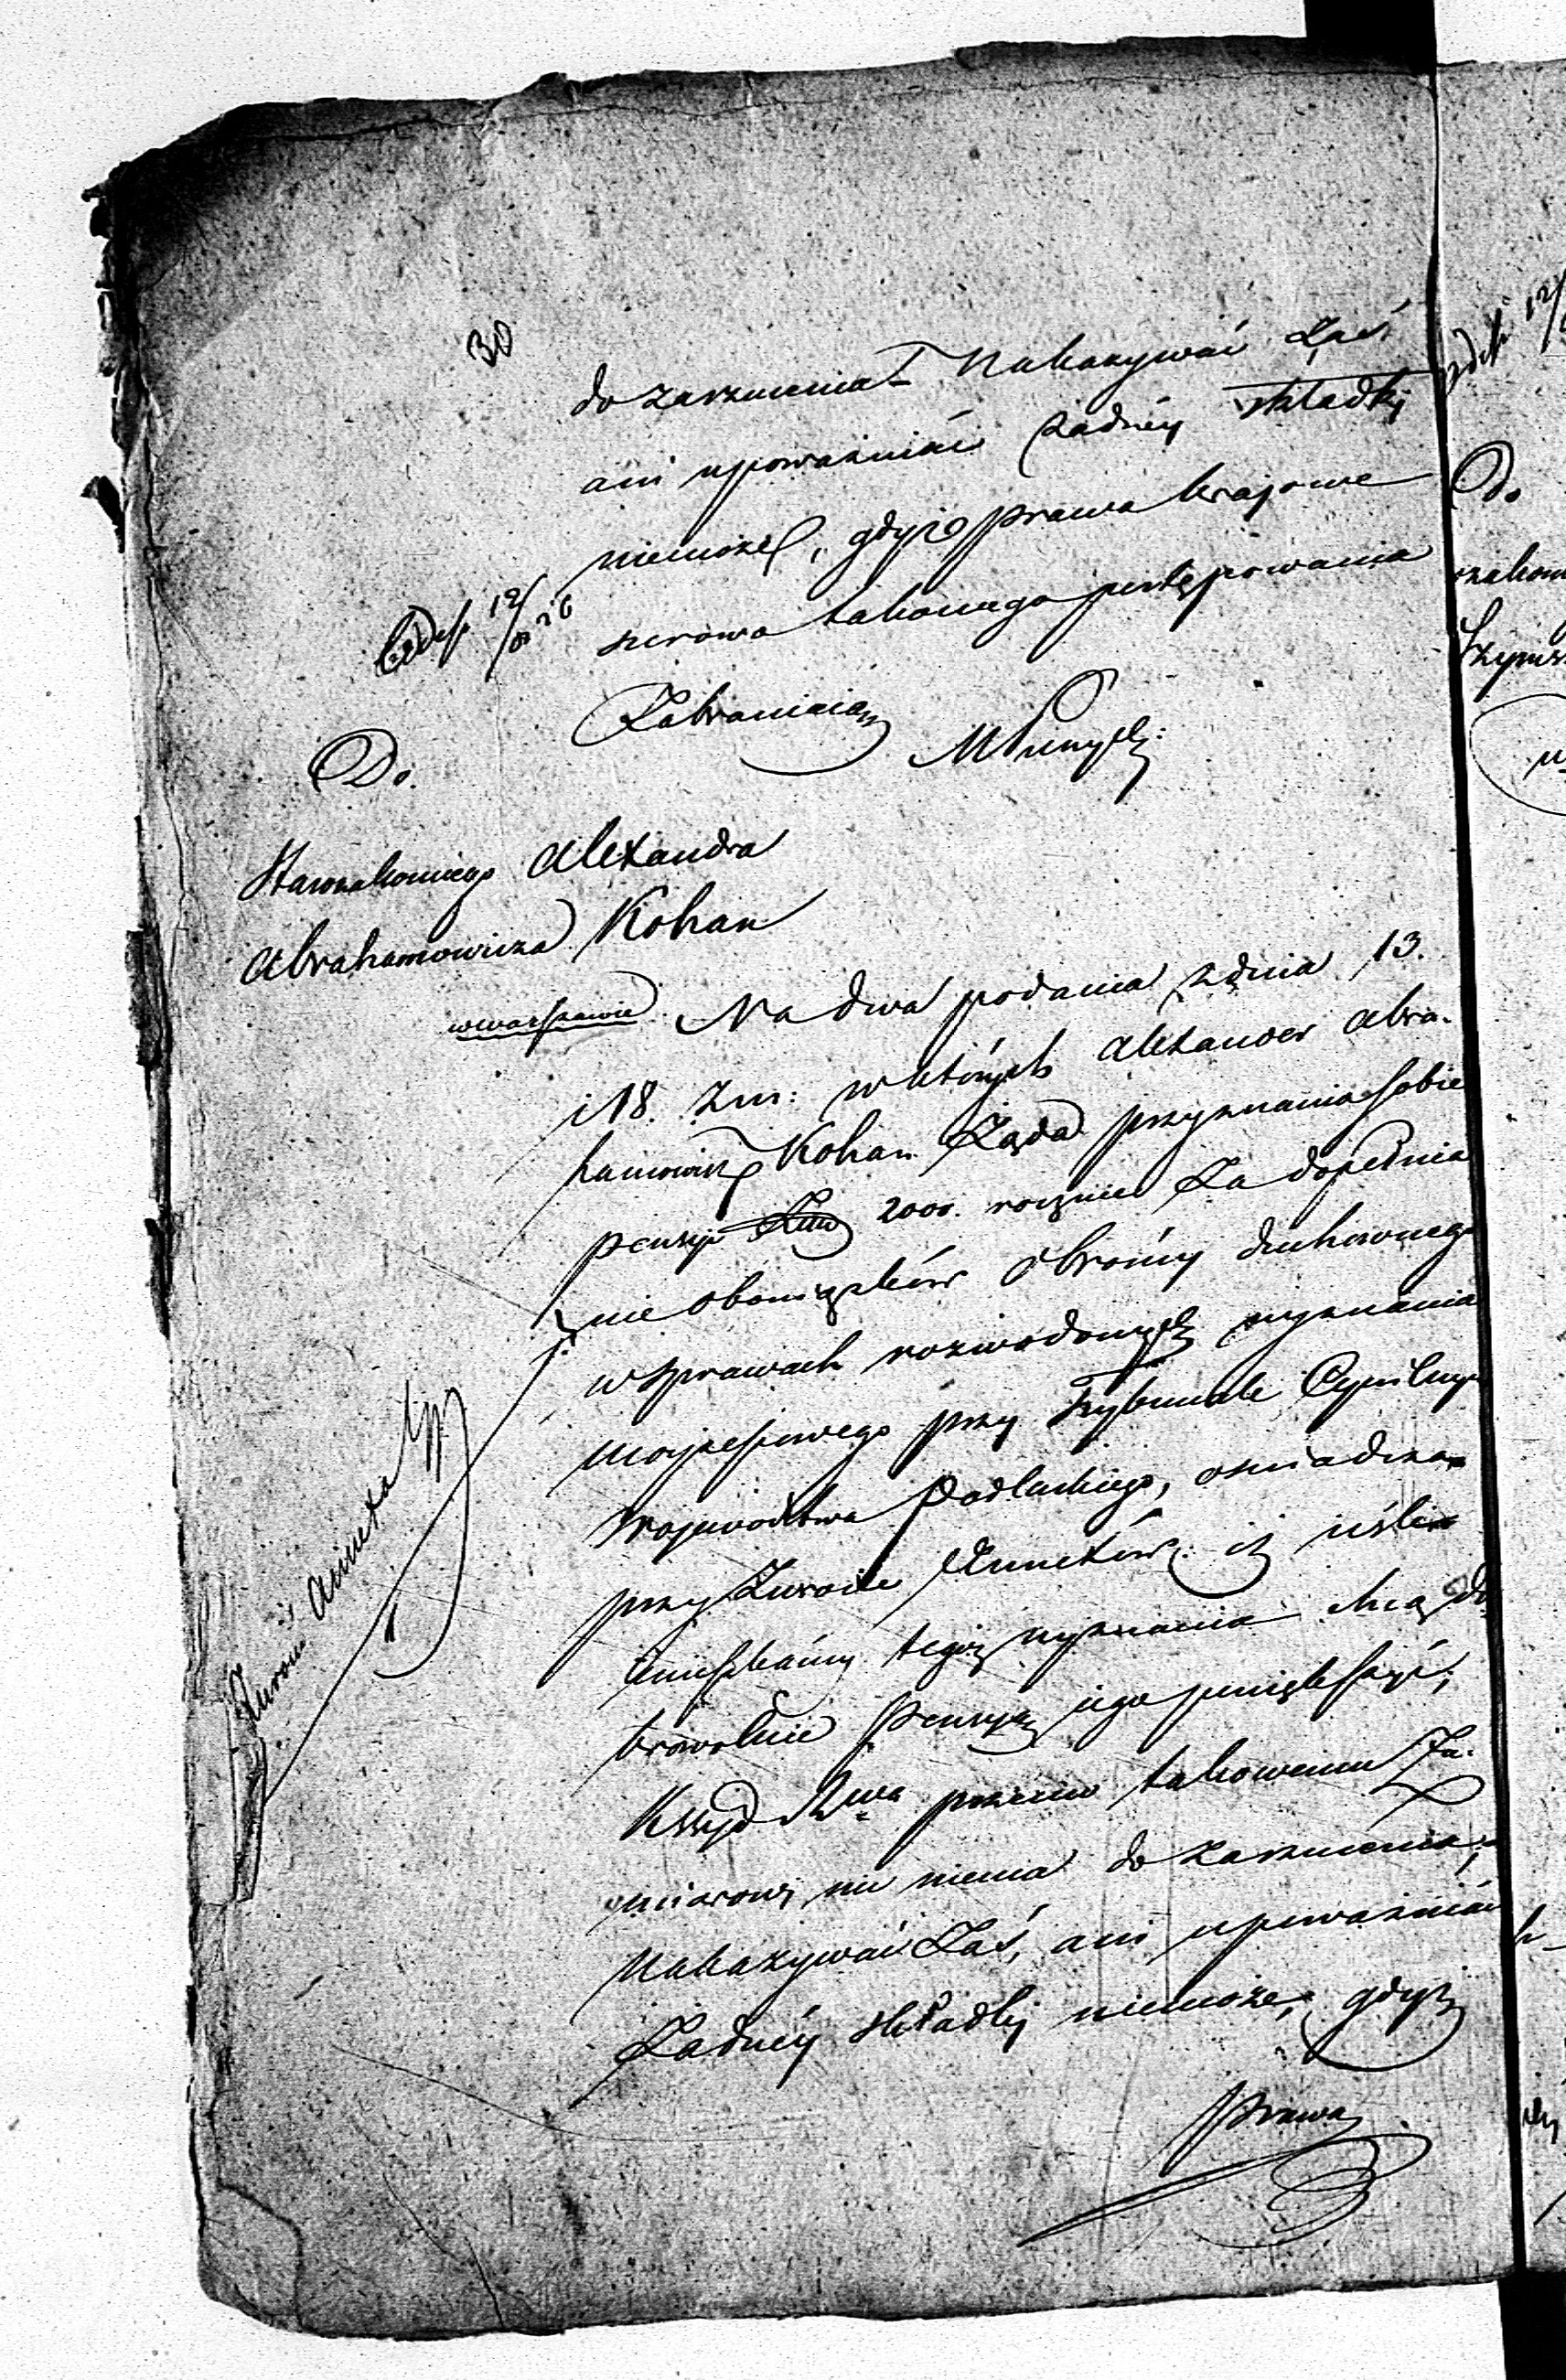 30
do zarzucenia Nakazywać zaś
ani upoważniać żadnéy składki
niemoże, gdyż prawa kraiowe
surowo takowego postępowania
Zabraniaią
Exdesp. 12/8 26
Do.
Starozakonnego Alexandra
Abrahamowicza Kohan
w Warszawie
Na dwa podania z dnia 13.
i 18. z. m: w których Alexander Abra-
hamowicz Kohan Żąda przyznania sobie
pensyi 2000. rocznie Za dopełnia
nie obowiązków Obrońcy duchownego
w sprawach rozwodowych wyznania
moyżeszowego przy Trybunale Cywilnym
Woiewództwa Podlaskiego, oświadcza
przy Zwrocie Annexów: iż ieśli
mieszkańcy tegoż wyznania chcą do
browolnie Pensyą iego powiększyć,
przeciw takowemu Za-
miarowi nic niema do zarzucenia,
Nakazywać Zaś, ani upoważniać
Żadnéy składki niemoże, gdyż
prawa
Zwrot Annexa
Do